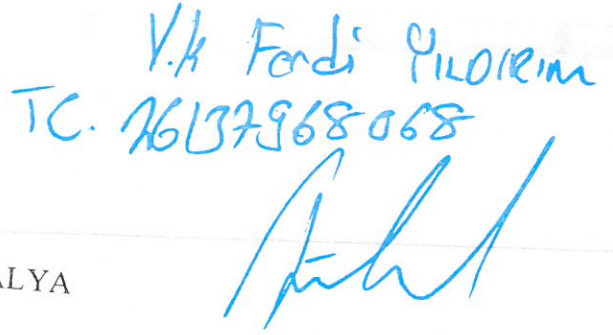 V.k Ferdi YILDIRIM
TC. 26137968068
ALYA